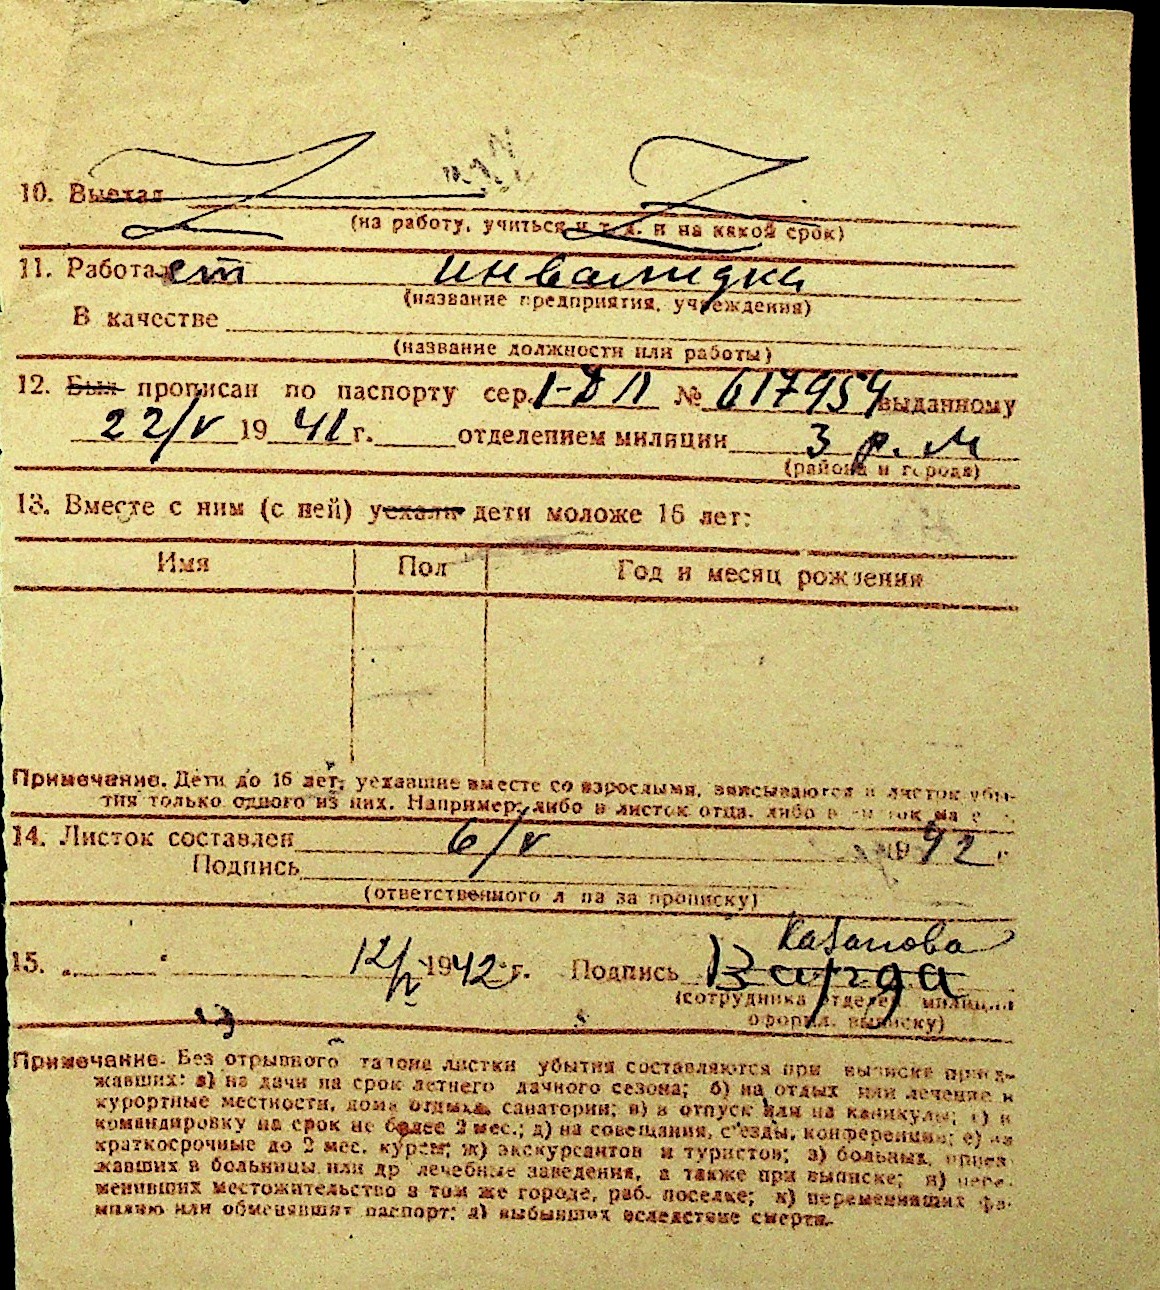 10. Выехал
(на работу, учиться и т. д. и на какой срок)
11. Работает инвалидка
(название предприятия, учреждения)
В качестве
(название должности или работы)
12. Был прописан по паспорту сер. I-ДЛ № 617954 выданному
22/V 1941 г. отделением милиции 3 р. м
(района и города)
13. Вместе с ним (с ней) уехали дети моложе 16 лет:
Имя Пол Год и месяц рождения
Примечание. Дети до 16 лет, уехавшие вместе со взрослыми, вписываются в листок убы-
тия только одного из них. Например: либо в листок отца, либо в листок ма
14. Листок составлен 6/V 1942 г.
Подпись
(ответственного лица за прописку)
Кабанова
15. „ “ 12/V 1942 г. Подпись
(сотрудника отделен. милиции
оформл. выписку)
Примечание. Без отрывного талона листки убытия составляются при выписке приез-
жавших: а) на дачи на срок летнего дачного сезона; б) на отдых или лечение в
курортные местности, дома отдыха, санатории; в) в отпуск или на каникулы; г) в
командировку на срок не более 2 мес.; д) на совещания, съезды, конференции; е) на
краткосрочные до 2 мес. курсы; ж) экскурсантов и туристов; з) больных, приез-
жавших в больницы или др лечебные заведения, а также при выписке; и) пере-
менивших местожительство в том же городе, раб. поселке; к) переменивших фа-
милию или обменявшит паспорт; л) выбывших вследствие смерти.